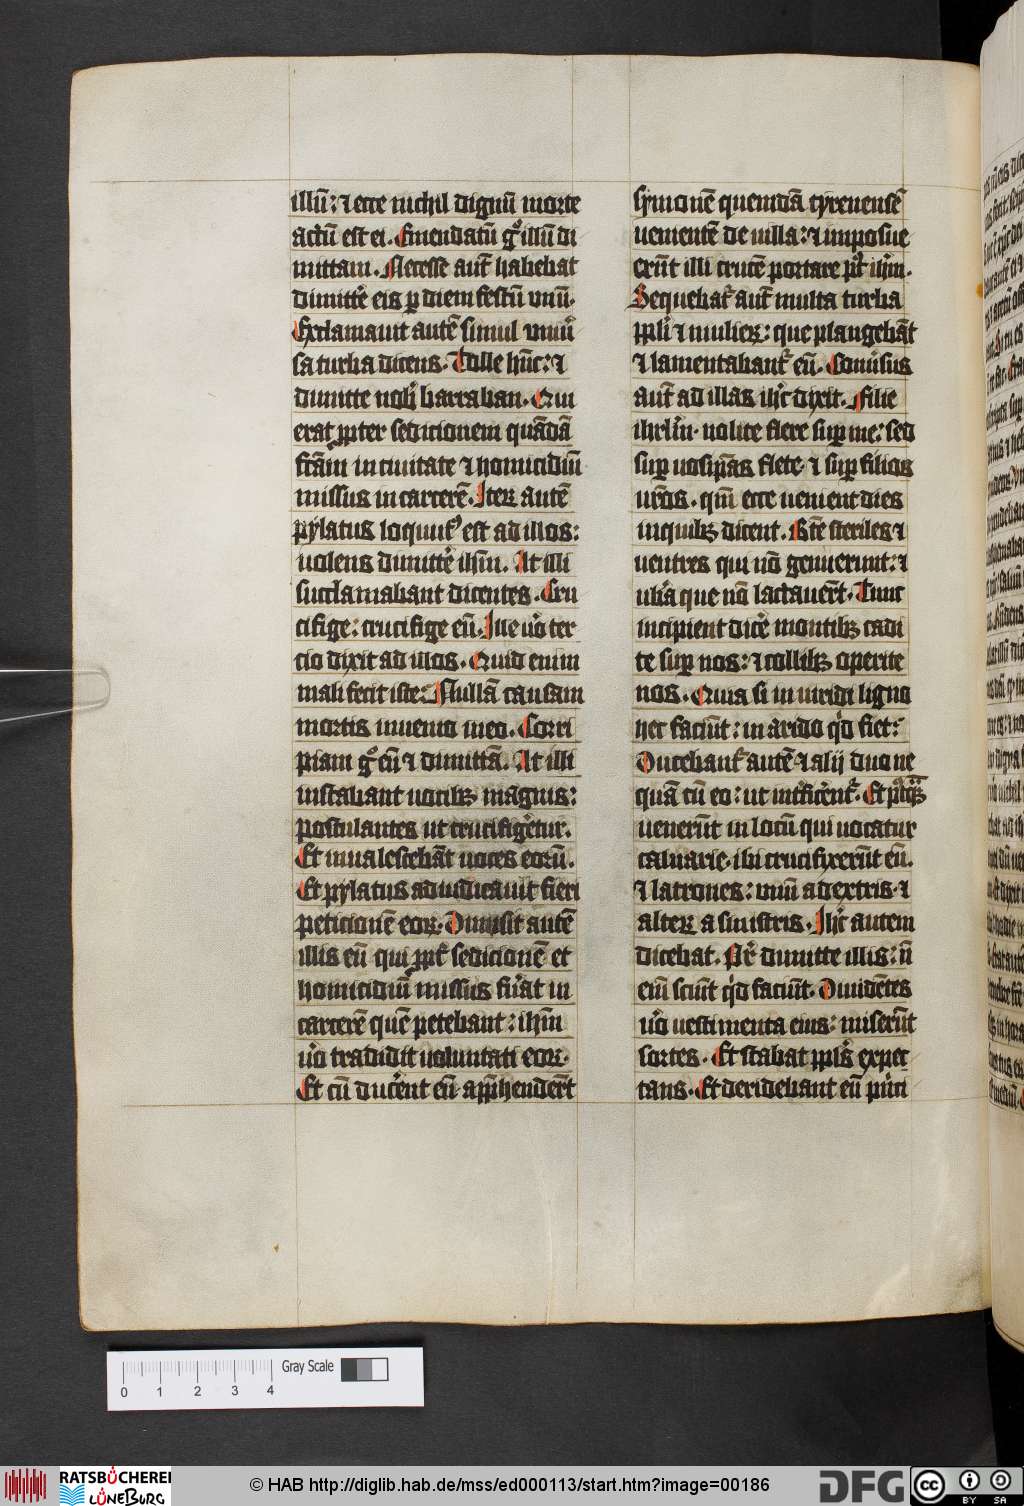 illū: ⁊ ecce nichil dignū morte
actū est ei. Emendatū gͦ illū di
mittam. Necesse aut̄ habebat
dimitte᷑ eis ꝑ diem festū vnū.
Exclamauit autē simul vniu᷑
sa turba dicens. Tolle hūc: ⁊
dimitte nob᷑ barraban. Qui
erat ꝓpter sedicionem quādā
fc̄am in ciuitate ⁊ homicidiū
missus in carcerē. Iteꝝ autē
pylatus loquut᷒ est ad illos:
uolens dimitte᷑ ih̄m. At illi
succlamabant dicentes. Cru
cifige: crucifige eū. Ille u᷑o ter
cio dixit ad illos. Quid enim
mali fecit iste: Nullā causam
mortis inuenio in eo. Corri
piam gͦ eū ⁊ dimittā. At illi
instabant uocibꝫ magnis:
postulantes ut crucifige᷑tur.
Et inualescebāt uoces eorū.
Et pylatus adiudicauit fieri
peticionē eoꝝ. Dimisit autē
illis eū qui ꝓpt᷑ sedicionē et
homicidiū missus fu᷑at in
carcerē quē petebant: ih̄m
u᷑o tradidit uoluntati eoꝝ.
Et cū duce᷑nt eū app̄hendert̄
symonē quemdā cyrenensē
uenientē de uilla: ⁊ imposue
rūt illi crucē portare pꝰt ih̄m.
Sequebat᷑ aut̄ multa turba
ppl᷑i ⁊ mulieꝝ: que plangebāt
⁊ lamentabant᷑ eū. Conu᷑sus
aut̄ ad illas ih᷑c dixit. Filie
ihrl᷑m. nolite flere suꝑ me: sed
suꝑ uosip̄as flete. ⁊ suꝑ filios
ur̄os. qm̄ ecce uenient dies
in quibꝫ dicent. Bt̄e steriles ⁊
uentres qui nō genuerunt: ⁊
ub᷑a que nō lactauert̄. Tunc
incipient dice᷑ montibꝫ cadi
te suꝑ nos: ⁊ collibꝫ operite
nos. Quia si in uiridi ligno
hec faciūt: in arido qd᷑ fiet:
Ducebant᷑ autē ⁊ alij duo ne
quā cū eo: ut int᷑fice᷑nt᷑. Et pꝰqͣꝫ
venerūt in locū qui uocatur
caluarie. ibi crucifixerūt eū.
⁊ latrones: vnū a dextris. ⁊
alteꝝ a sinistris. Ih᷑c autem
dicebat. Pr̄ dimitte illis: n̄
eni᷑ sciūt qd᷑ faciūt. Diuidētes
u᷑o uestimenta eius: miserūt
sortes. Et stabat ppl᷑s expec
tans. Et deridebant eū pu᷑ci
Gray Scale
0 1 2 3 4
RATSBÜCHEREI
LÜNEBURG
© HAB http://diglib.hab.de/mss/ed000113/start.htm?image=00186
DFG
cc BY SA